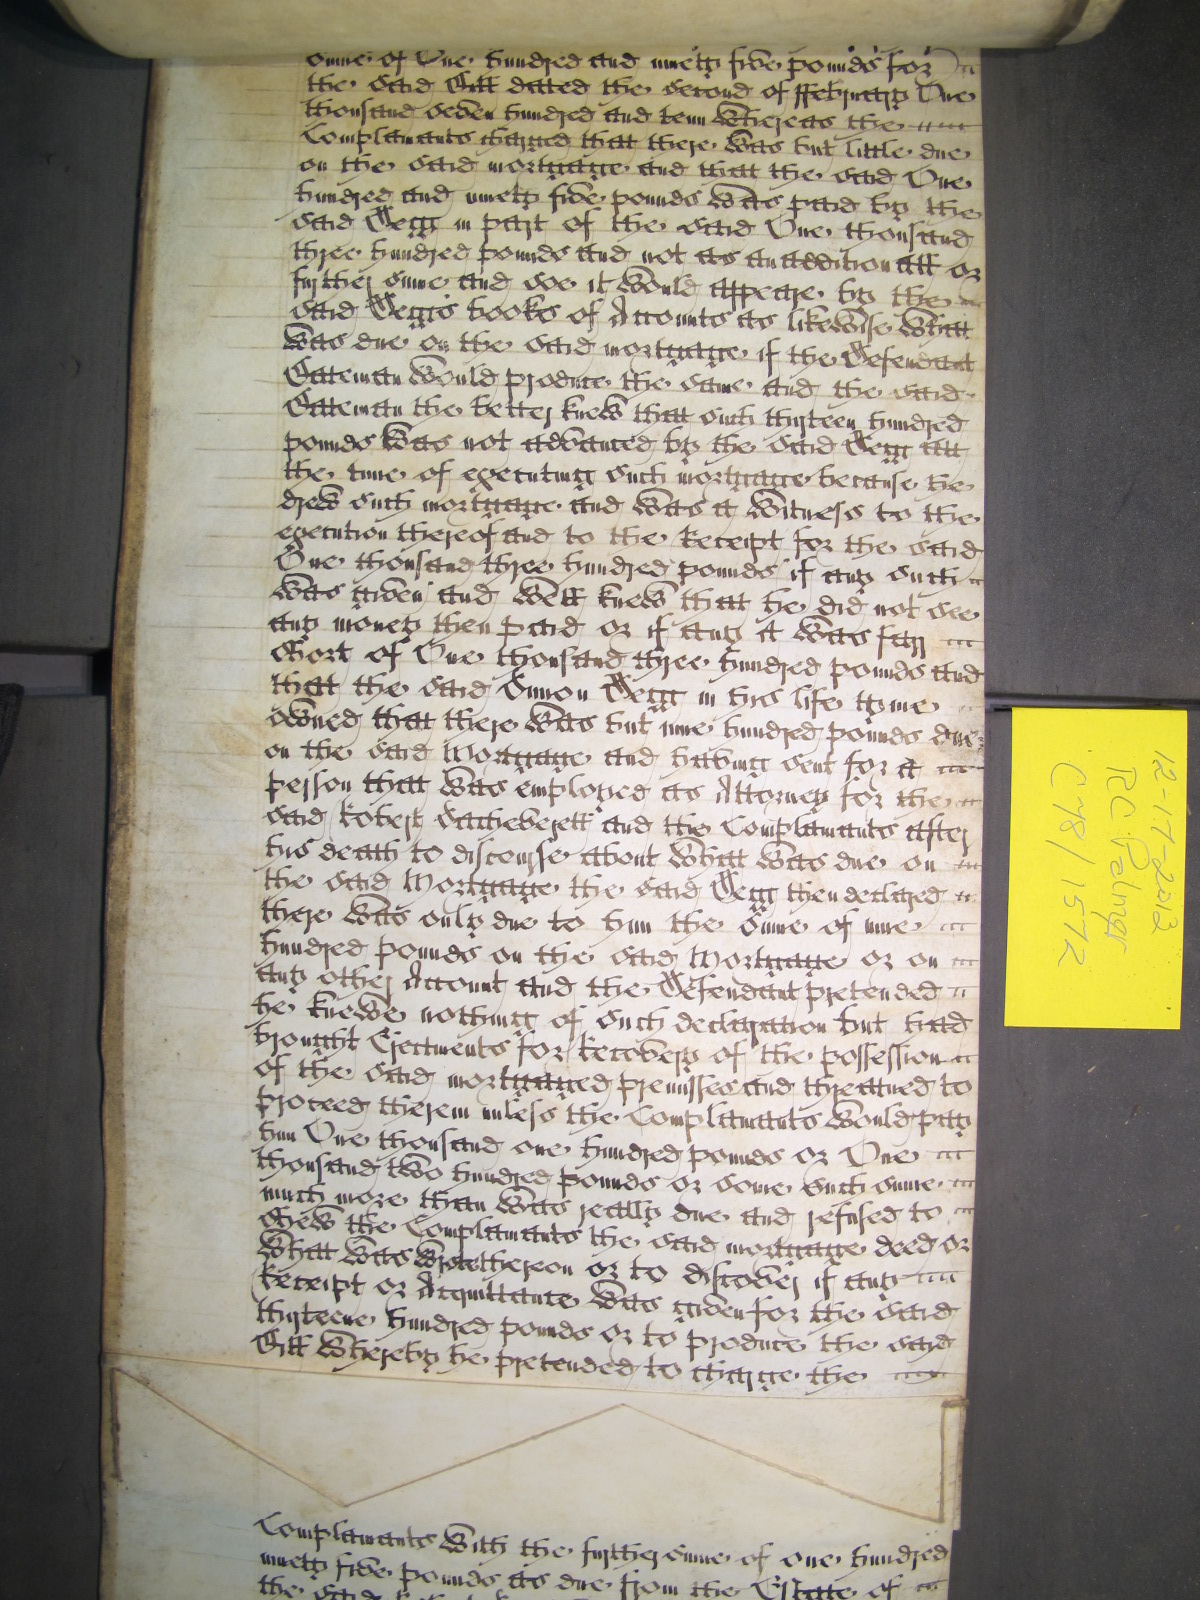 sume of One hundred and ninety five pounds for
the said Bill dated the second of ffebruary One
thousand seven hundred and tenn Whereas the
Complainants charged that there was but little due
on the said mortgage and that the said One
hundred and ninety five pounds was paid by the
said Degg in part of the said One thousand
three hundred pounds and not as an addition all or
further sume and soe it would appeare by the
said Degg's books of Accounts as likewise what
was due on the said mortgage if the Defendant
Bateman would produce the same and the said
Bateman the better knew that such thirteen hundred
pounds was not advanced by the said Degg att
the time of executing such mortgage because he
drew such mortgage and was a Witness to the
execution thereof and to the Receipt for the said
One thousand three hundred pounds if any such
was given and well knew that he did not see
any money then paid or if any it was farr
short of One thousand three hundred pounds and
that the said Simon Degg in his life tyme
owned that there was but nine hundred pounds due
on the said Mortgage and having sent for a
person that was employed as Attorney for the
said Robert Sacheverell and the Complainants after
his death to discourse about what was due on
the said Mortgage the said Degg then declared
there was only due to him the sume of nine
hundred pounds on the said Mortgage or on
any other Account and the Defendant pretended
he knewe nothing of such declaration but had
brought Ejectments for Recovery of the possession
of the said mortgaged premisses and threatned to
proceed therein unless the Complainants would pay
him One thousand one hundred pounds or One
thousand two hundred pounds or some such sume
much more than was really due and refused to
shew the Complainants the said mortgage deed or
what was wrote thereon or to discover if any
Receipt or Acquittance was given for the said
thirteene hundred pounds or to produce the said
Bill whereby he pretended to charge the
Complainants with the further sume of one hundred
ninety five pounds as due from the Estate of
the said
12-17-2012
RC Pelmg
C78/1572